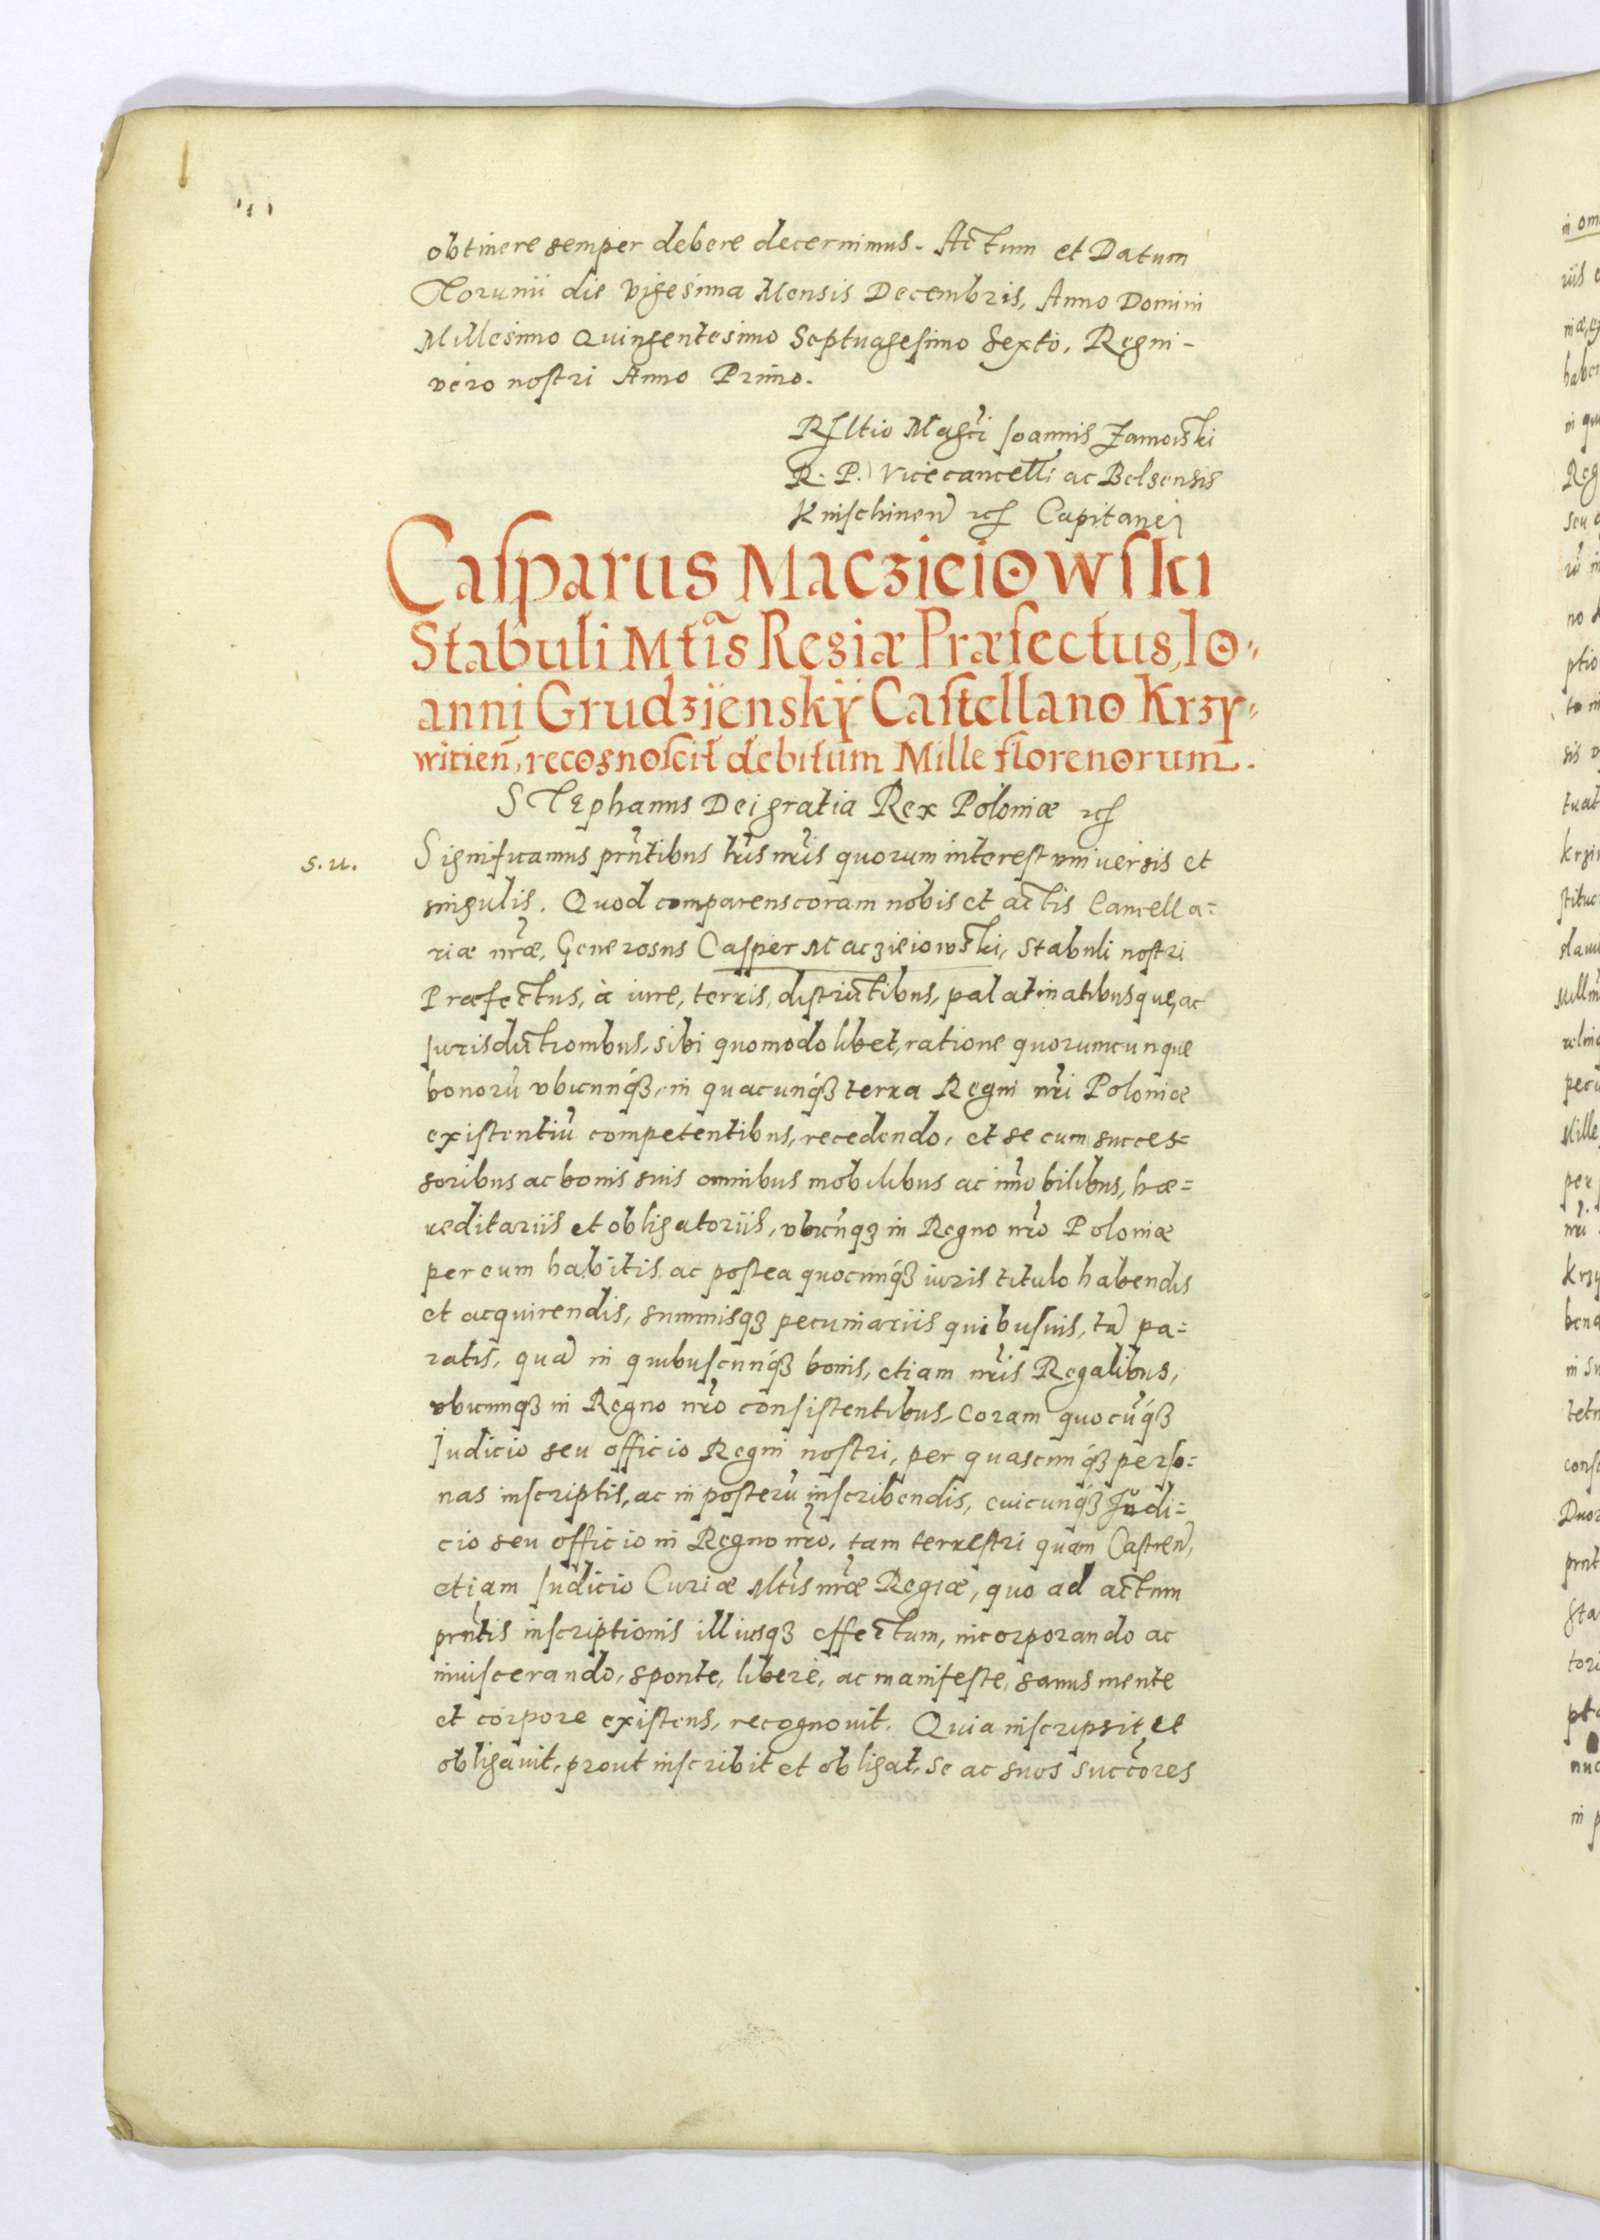 obtinere semper debere decernimus. Actum et Datum
Torunii die vigesima Mensis Decembris, Anno Domini
Millesimo Quingentesimo Septuagesimo Sexto, Regni -
vero nostri Anno Primo.
Rltio Magci Joannis Zamoiski
R. P. Vicecancelli ac Belsensis
Knischinen etc Capitanei
Casparus Macziciowski
Stabuli Mtis Regiæ Præfectus, Io=
anni Grudzÿenskÿ Castellano Krzy=
wicien, recognoscit debitum Mille florenorum.
STEphanus Dei gratia Rex Poloniæ etc
s. u.
Significamus prntibus lris nris quorum interest universis et
singulis. Quod comparens coram nobis et actis Cancella=
riæ nræ, Generosus Casper Maczieiowski, Stabuli nostri
Præfectus, à iure, terris, districtibus, palatinatibusque, ac
Jurisdictionibus, sibi quomodolibet, ratione quorumcunque
bonorū vbicunq3, in quacunq3 terra Regni nri Poloniæ
existentiū competentibus, recedendo, et se cum succes=
soribus ac bonis suis omnibus mobilibus ac imobilibus, hæ=
reditariis et obligatoriis, vbicūq3 in Regno nro Poloniæ
per eum habitis ac postea quocunq3 iuris titulo habendis
et acquirendis, summisq3 pecuniariis quibusuis, tā pa=
ratis, quā in quibuscunq3 bonis, etiam nris Regalibus,
vbicunq3 in Regno nro consistentibus, coram quocūq3
Judicio seu officio Regni nostri, per quascunq3 perso=
nas inscriptis, ac in posterū inscribendis, cuicunq3 Judi=
cio seu officio in Regno nro, tam terrestri quam Castren,
etiam Judicio Curiæ Mtis nræ Regiæ, quo ad actum
prntis inscriptionis illiusq3 effectum, incorporando ac
inuiscerando, sponte, liberè, ac manifeste, sanus mente
et corpore existens, recognouit. Quia inscripsit et
obligauit, prout inscribit et obligat, se ac suos succores